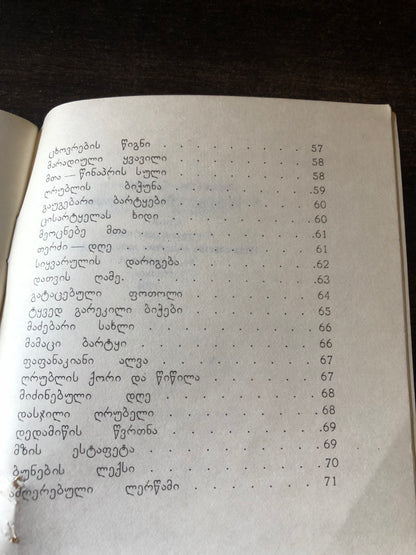 ცხოვრების წიგნი . . . . . . . . . 57
მარადიული ყვავილი . . . . . . . . 58
მთა — წინაპრის სული . . . . . . . 58
ღრუბლის ბიჭუნა . . . . . . . . . .59
გაუგებარი ბარტყები . . . . . . . . 60
ცისარტყელას ხიდი . . . . . . . . . 60
მეოცნებე მთა . . . . . . . . . . .61
თერძი — დღე . . . . . . . . . . . .61
სიყვარულის დარიგება . . . . . . . .62
დათვის ღამე. . . . . . . . . . . .63
გატაცებული ფოთოლი . . . . . . . . 64
ტყვედ გარეკილი ბიჭები . . . . . . . 65
მაძებარი სახლი . . . . . . . . . . 66
მამაცი ბარტყი . . . . . . . . . . 66
ფაფანაკიანი ალვა . . . . . . . . . 67
ღრუბლის ქორი და წიწილა . . . . . . 67
მიძინებული დღე . . . . . . . . . . 68
დასჯილი ღრუბელი . . . . . . . . . 68
დედამიწის წვრთნა . . . . . . . . .69
მზის ესტაფეტა . . . . . . . . . . .69
ბუნების ლექსი . . . . . . . . . . .70
ამღერებული ლერწამი . . . . . . . . 71